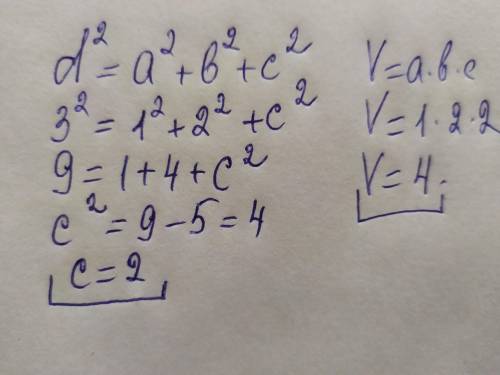 d² = a² + b² + c²
3² = 1² + 2² + c²
9 = 1 + 4 + c²
c² = 9 - 5 = 4
c = 2
V = a · b · c
V = 1 · 2 · 2
V = 4.